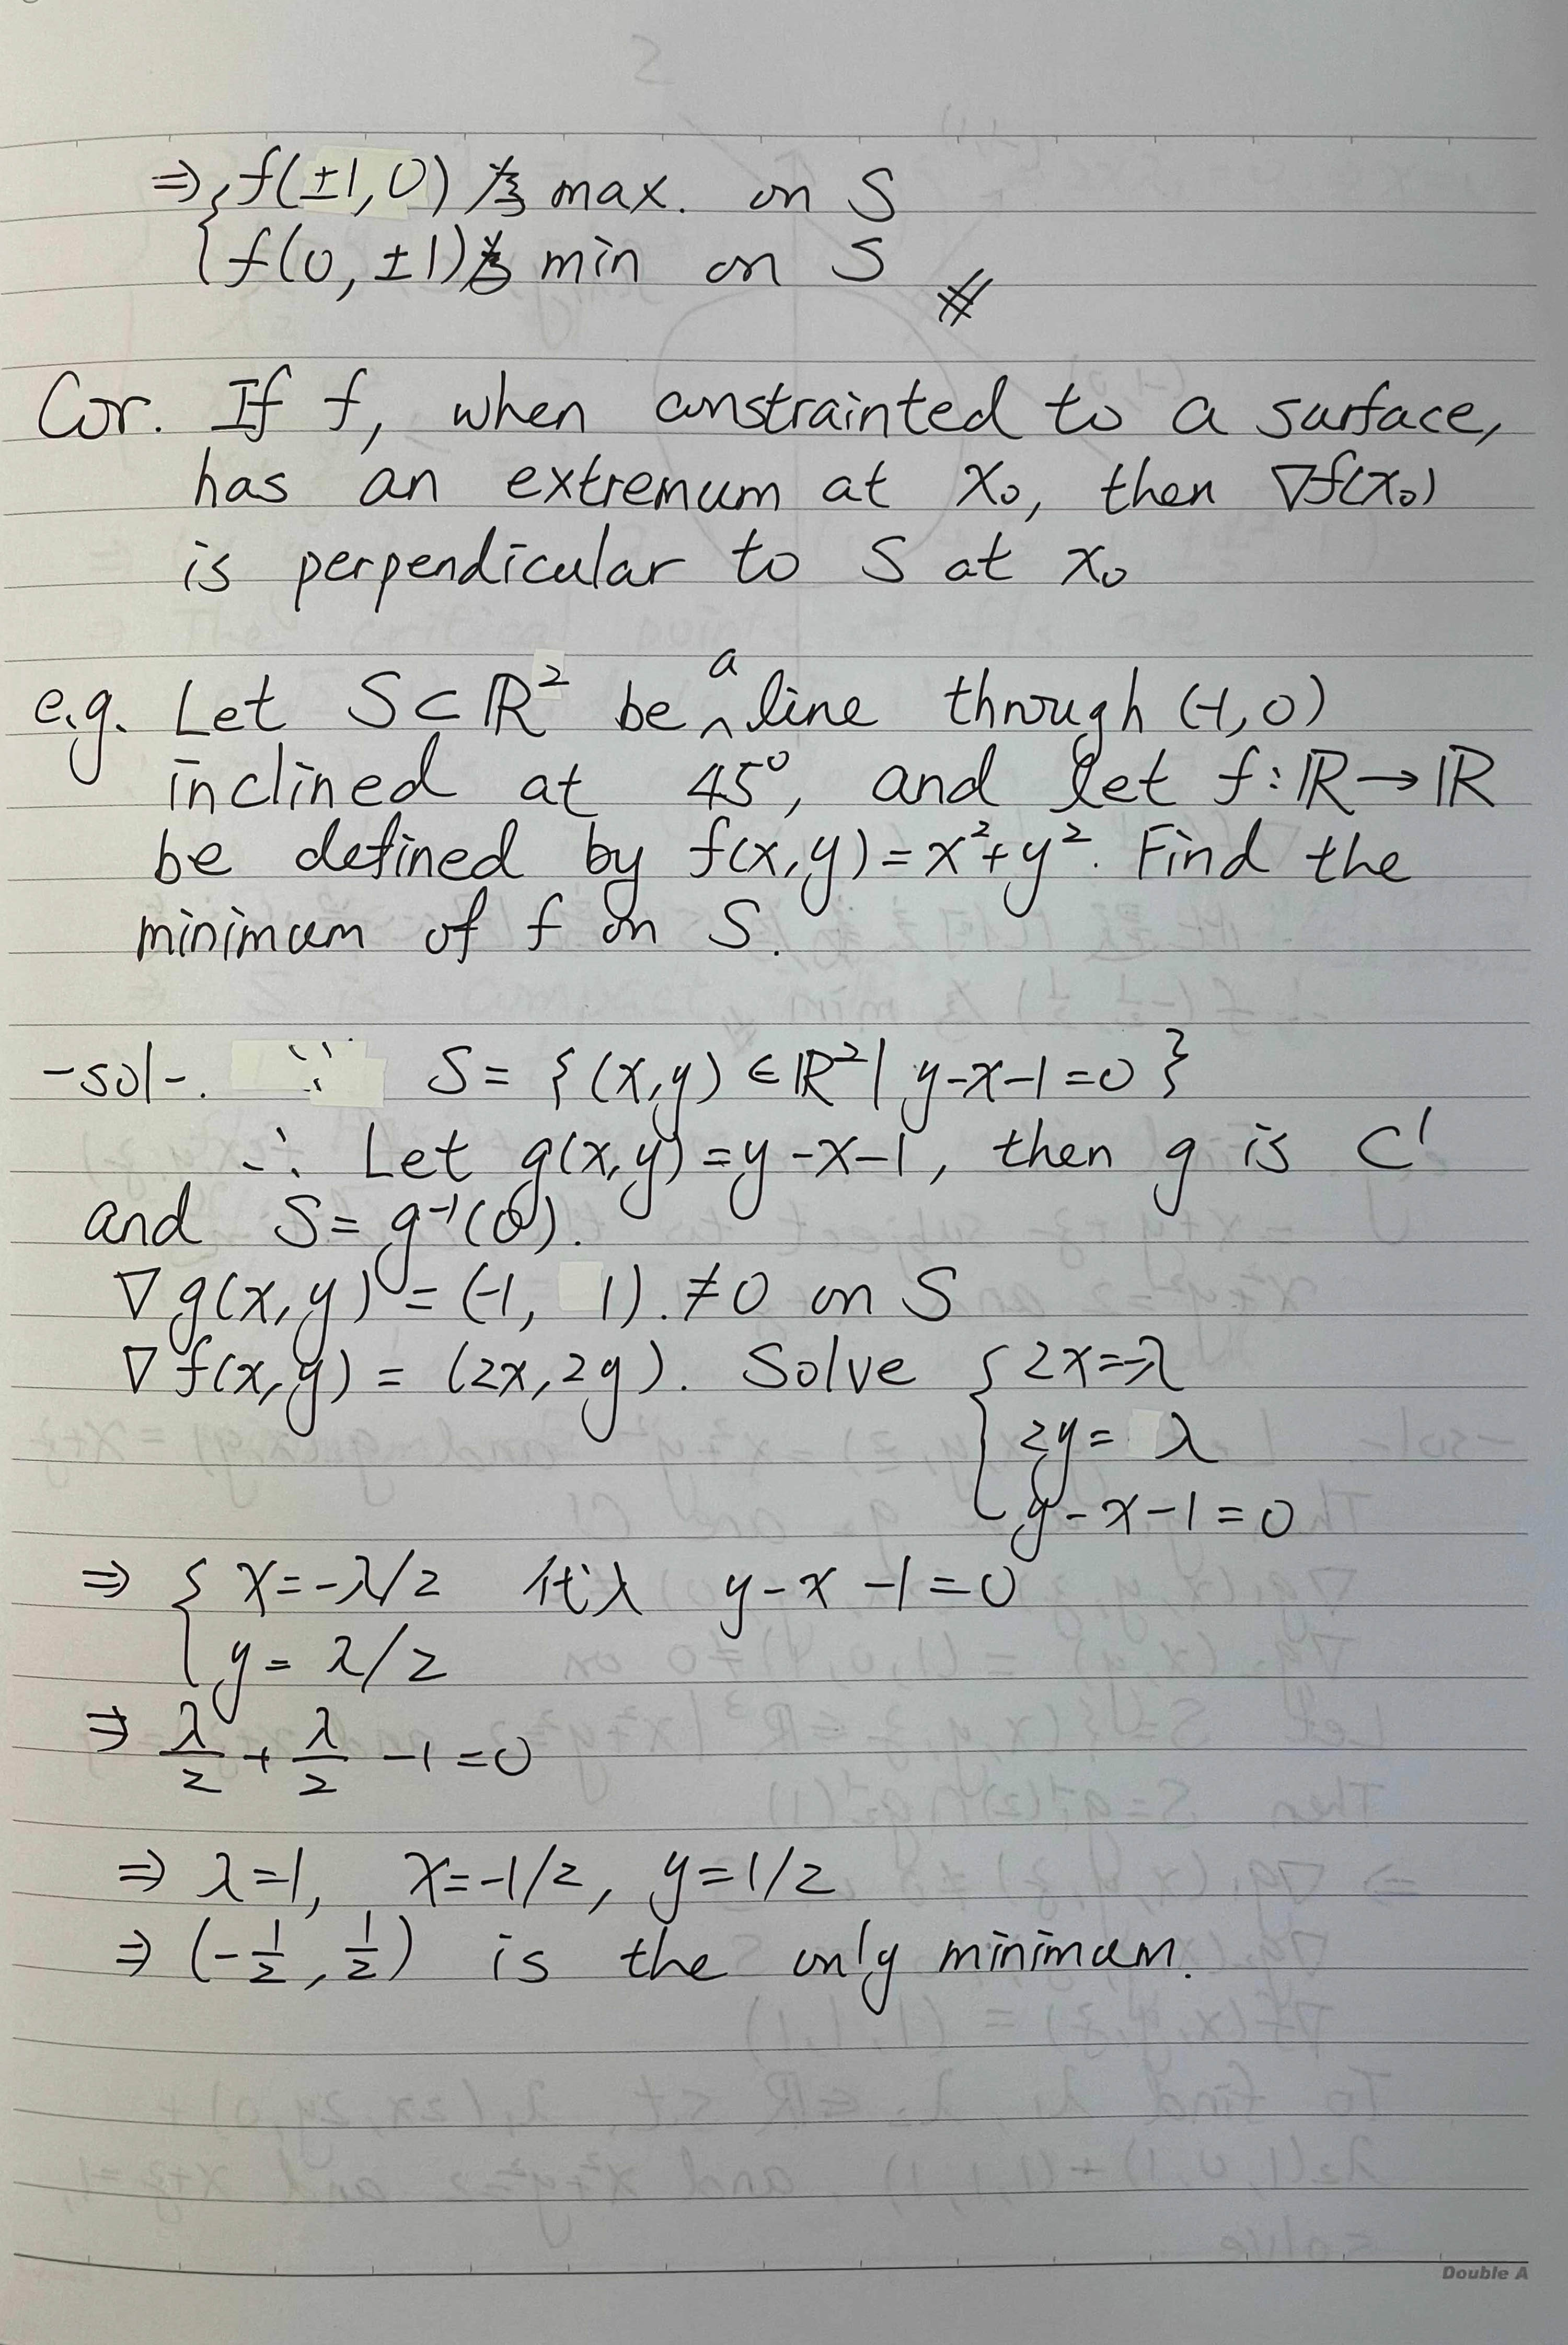 ⇒ { f(±1,0) 為 max. on S
f(0, ±1) 為 min on S #
Cor. If f, when constrainted to a surface,
has an extremum at x₀, then ∇f(x₀)
is perpendicular to S at x₀
e.g. Let S⊂ℝ² be a line through (-1,0)
inclined at 45°, and let f:ℝ→ℝ
be defined by f(x,y)=x²+y². Find the
minimum of f on S.
-sol-. ∵ S= {(x,y)∈ℝ²| y-x-1=0}
∴ Let g(x,y)=y-x-1, then g is C¹
and S=g⁻¹(0).
∇g(x,y)=(-1, 1).≠0 on S
∇f(x,y)=(2x,2y). Solve { 2x=-λ
2y= λ
y-x-1=0
⇒ { x=-λ/2 代入 y-x-1=0
y= λ/2
⇒ λ/2 + λ/2 -1=0
⇒ λ=1, x=-1/2, y=1/2
⇒ (-1/2, 1/2) is the only minimum.
Double A